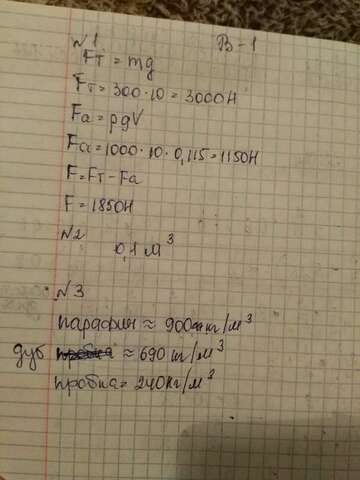 №1 В-1
Fт = mg
Fт = 300·10 = 3000Н
Fa = ρgV
Fa = 1000·10·0,115 = 1150Н
F = Fт - Fa
F = 1850Н
№2
0,1 м³
№3
парафин ≈ 900 кг/м³
дуб ≈ 690 кг/м³
пробка = 240 кг/м³